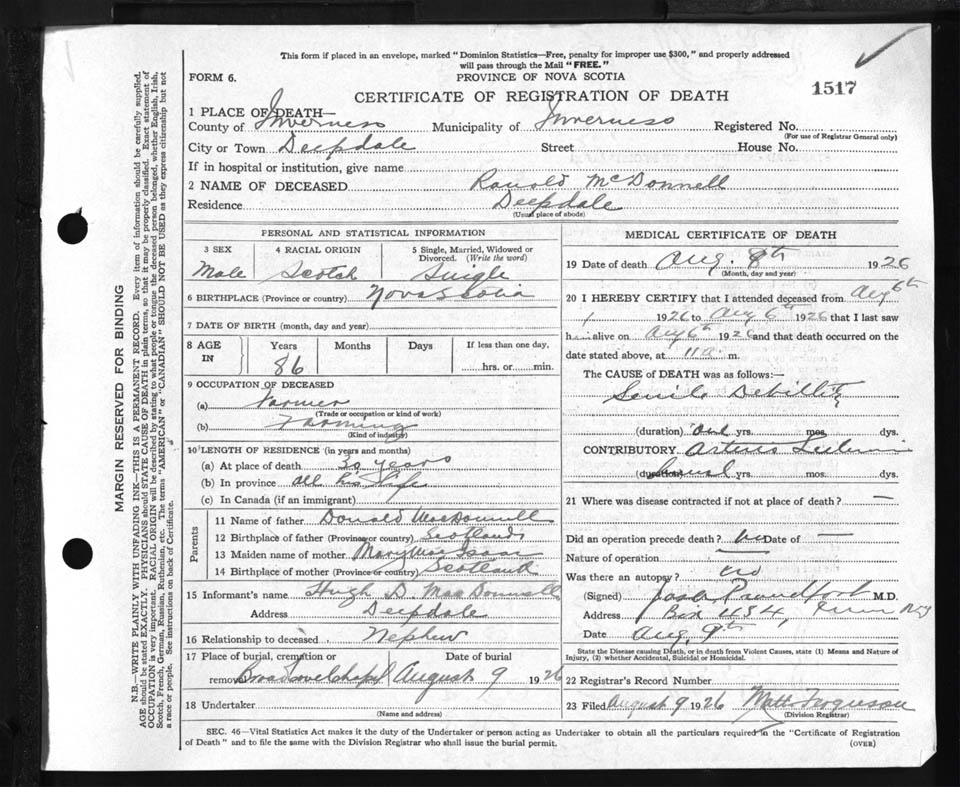 This form if placed in an envelope, marked "Dominion Statistics—Free, penalty for improper use $300," and properly addressed
will pass through the Mail "FREE."
FORM 6.
PROVINCE OF NOVA SCOTIA
1517
CERTIFICATE OF REGISTRATION OF DEATH
1 PLACE OF DEATH—
County of Inverness Municipality of Inverness Registered No.
(For use of Registrar General only)
City or Town Deepdale Street House No.
If in hospital or institution, give name
2 NAME OF DECEASED Ronald McDonnell
Residence Deepdale
(Usual place of abode)
PERSONAL AND STATISTICAL INFORMATION
3 SEX 4 RACIAL ORIGIN 5 Single, Married, Widowed or Divorced. (Write the word)
Male Scotch Single
6 BIRTHPLACE (Province or country) Nova Scotia
7 DATE OF BIRTH (month, day and year)
8 AGE IN Years Months Days If less than one day,
86 hrs. or min.
9 OCCUPATION OF DECEASED
(a) Farmer
(Trade or occupation or kind of work)
(b) Farming
(Kind of industry)
10 LENGTH OF RESIDENCE (in years and months)
(a) At place of death 30 years
(b) In province all his life
(c) In Canada (if an immigrant)
Parents
11 Name of father Donald MacDonnell
12 Birthplace of father (Province or country) Scotland
13 Maiden name of mother Mary MacIsaac
14 Birthplace of mother (Province or country) Scotland
15 Informant's name Hugh D. MacDonnell
Address Deepdale
16 Relationship to deceased Nephew
17 Place of burial, cremation or removal Date of burial
Broad Cove Chapel August 9 1926
18 Undertaker
(Name and address)
MEDICAL CERTIFICATE OF DEATH
19 Date of death Aug. 8th 1926
(Month, day and year)
20 I HEREBY CERTIFY that I attended deceased from Aug 6th
1926 to Aug 6th 1926 that I last saw
him alive on Aug 6th 1926 and that death occurred on the
date stated above, at 11 a. m.
The CAUSE of DEATH was as follows:—
Senile Debility
(duration) one yrs. mos. dys.
CONTRIBUTORY Arterio
(duration) yrs. mos. dys.
21 Where was disease contracted if not at place of death? —
Did an operation precede death? no Date of —
Nature of operation
Was there an autopsy? no
(Signed) Proudfoot M.D.
Address Box 434,
Date Aug. 9th
State the Disease causing Death, or in death from Violent Causes, state (1) Means and Nature of
Injury, (2) whether Accidental, Suicidal or Homicidal.
22 Registrar's Record Number
23 Filed August 9 1926 Matt Ferguson
(Division Registrar)
SEC. 46—Vital Statistics Act makes it the duty of the Undertaker or person acting as Undertaker to obtain all the particulars required in the "Certificate of Registration
of Death" and to file the same with the Division Registrar who shall issue the burial permit.
(OVER)
MARGIN RESERVED FOR BINDING
N.B.—WRITE PLAINLY WITH UNFADING INK—THIS IS A PERMANENT RECORD. Every item of information should be carefully supplied.
AGE should be stated EXACTLY. PHYSICIANS should STATE CAUSE OF DEATH in plain terms, so that it may be properly classified. Exact statement of
OCCUPATION is very important. RACIAL ORIGIN will be described by stating to what people or tongue the deceased person belonged, whether English, Irish,
Scotch, French, German, Russian, Ruthenian, etc. The terms "AMERICAN" or "CANADIAN" SHOULD NOT BE USED as they express citizenship but not
a race or people. See instructions on back of Certificate.